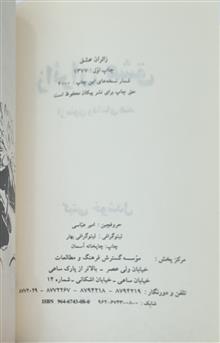 زائران عشق
چاپ اول: ۱۳۷۷
شمار نسخه‌های این چاپ: ۴۰۰۰
حق چاپ برای نشر پیکان محفوظ است
حروفچین: امیر عباسی
لیتوگرافی: لیتوگرافی بهار
چاپ: چاپخانه آسمان
مرکز پخش: مؤسسه گسترش فرهنگ و مطالعات
خیابان ولی عصر - بالاتر از پارک ساعی
خیابان ساعی - خیابان اشکانی - شماره ۱۴
تلفن و دورنگار: ۸۷۹۴۲۱۹ - ۸۷۹۴۲۱۸ - ۸۷۷۲۲۶۷ - ۸۷۷۲۰۲۹
شابک: ۰-۰۸-۶۷۴۳-۹۶۴ ISBN 964-6743-08-0